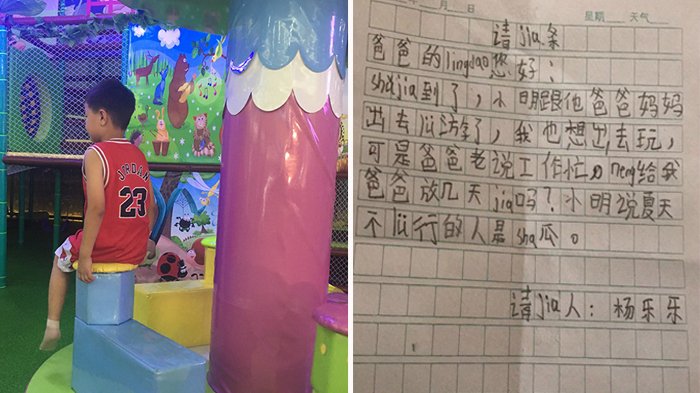 JORDAN
23
年 月 日 星期 天气
请jia条
爸爸的lingdao您好：
shǔjia到了，小明跟他爸爸妈妈
出去lǚ游了，我也想出去玩，
可是爸爸老说工作忙。neng给我
爸爸放几天jia吗？小明说夏天
不lǚ行的人是sha瓜。
请jia人：杨乐乐